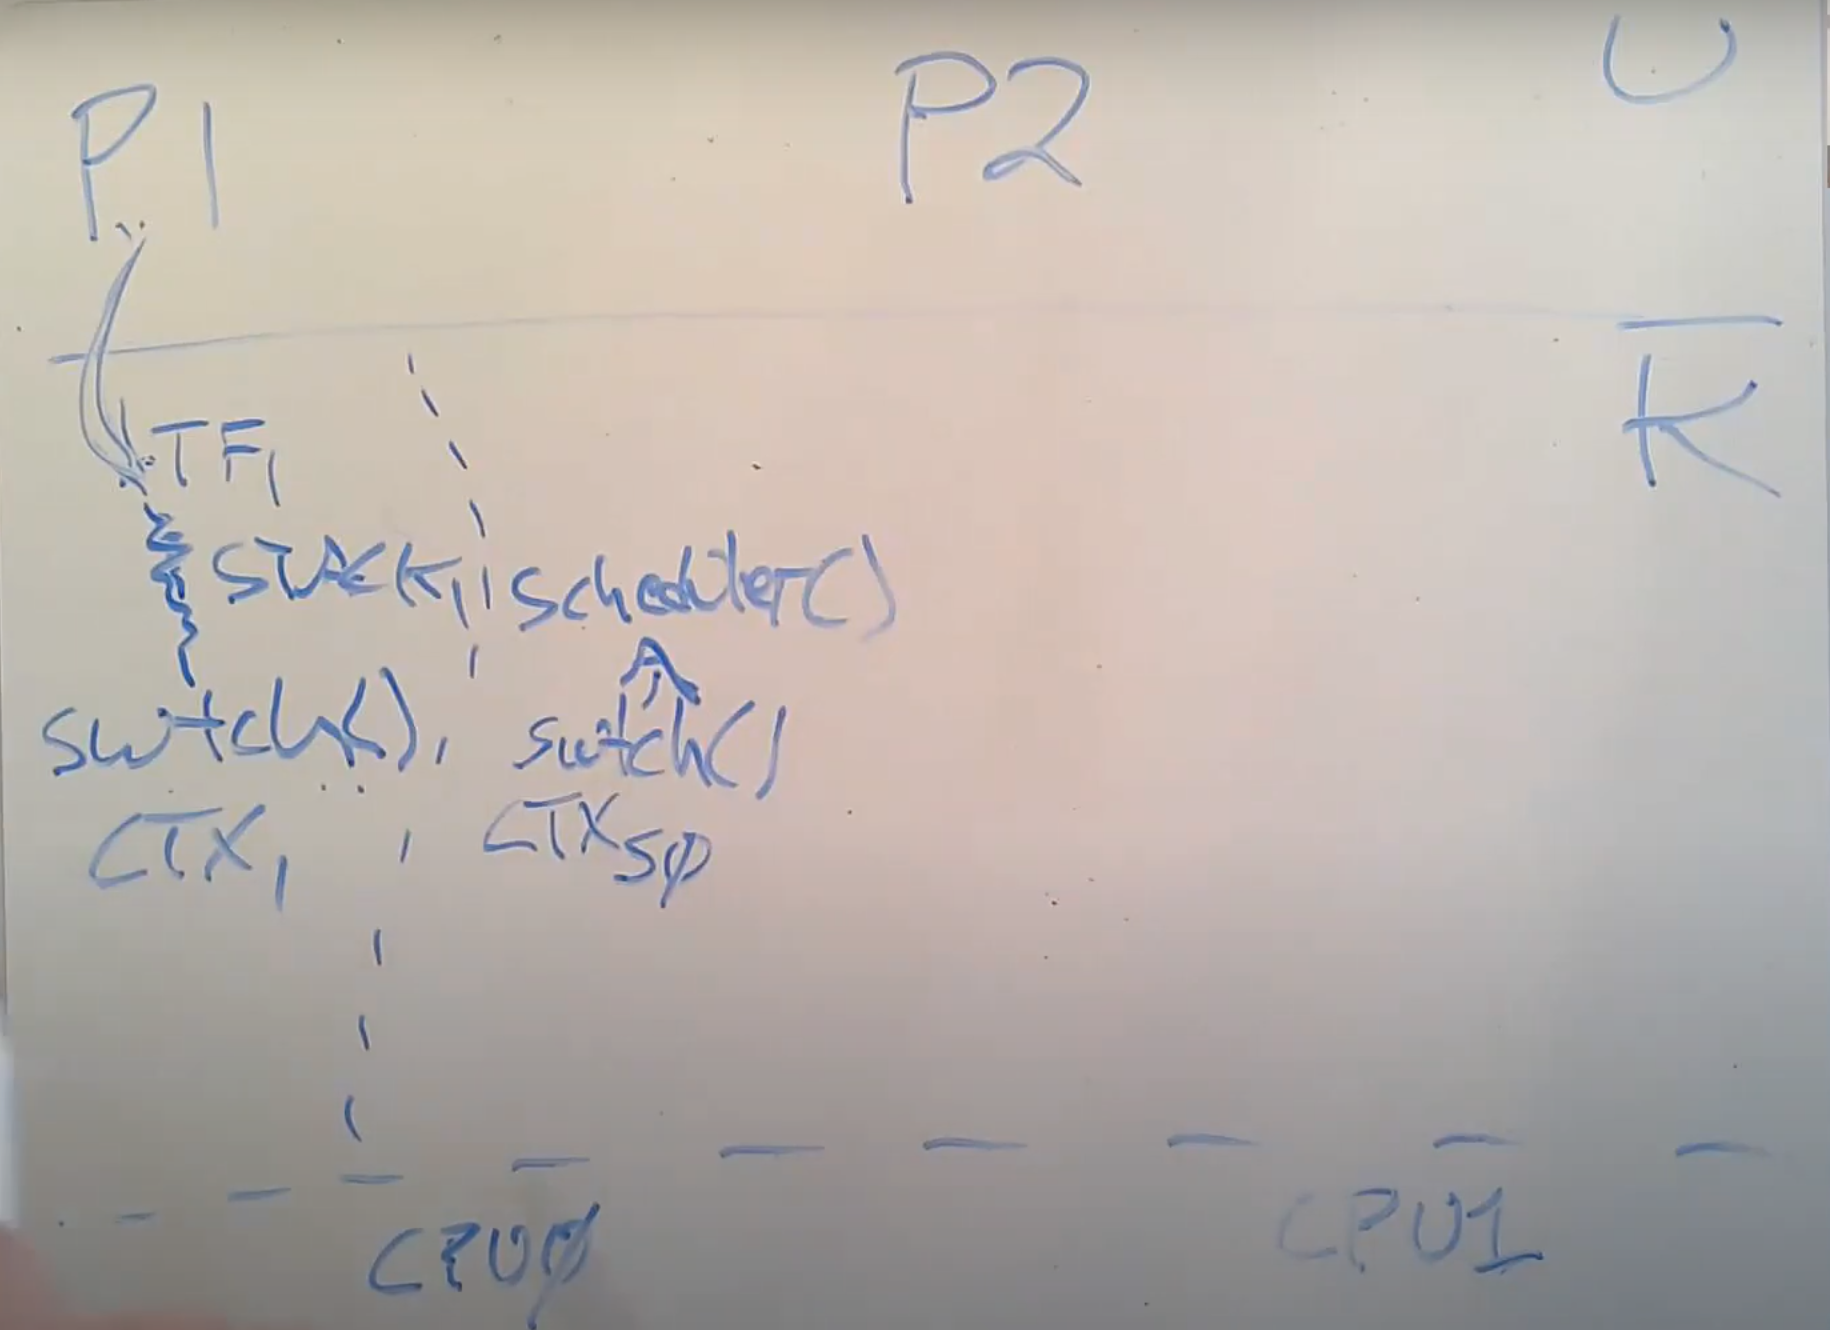 P1 P2 U
K
TF1
STACK1 scheduler()
swtch() swtch()
CTX1 CTXS0
CPU0 CPU1